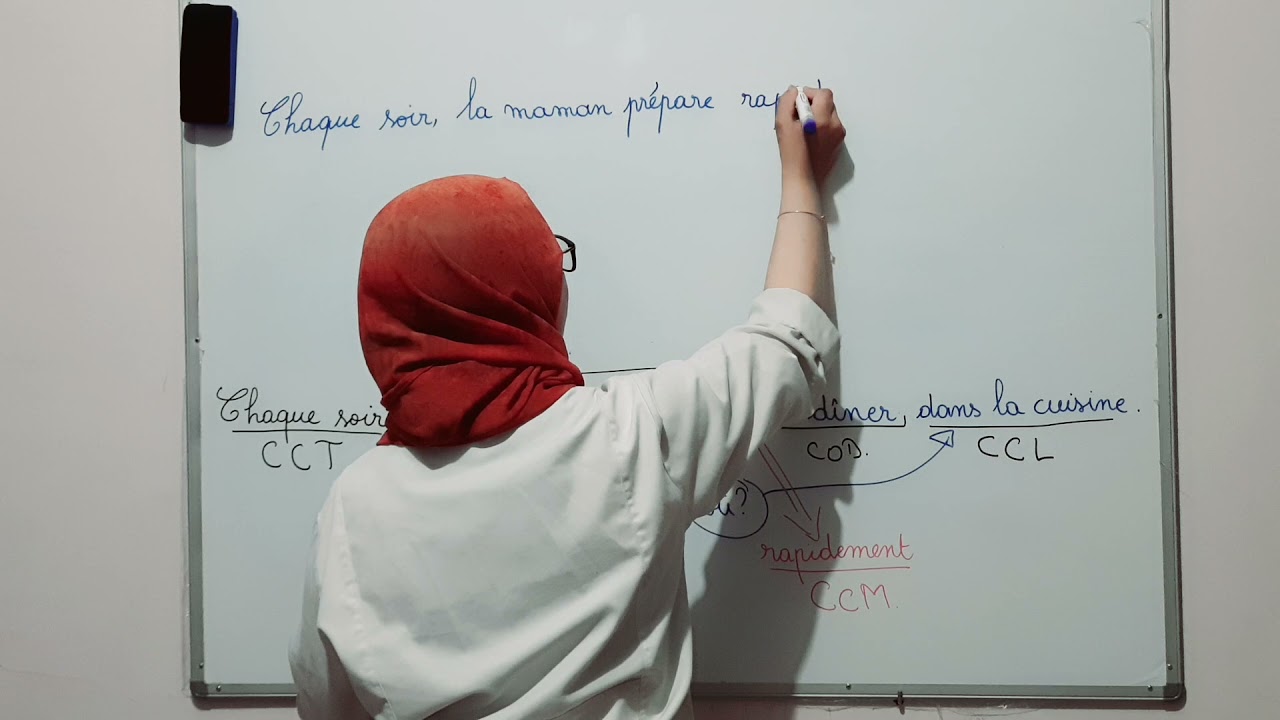 Chaque soir, la maman prépare
Chaque soir dîner, dans la cuisine.
CCT COD. CCL
où?
rapidement
CCM.